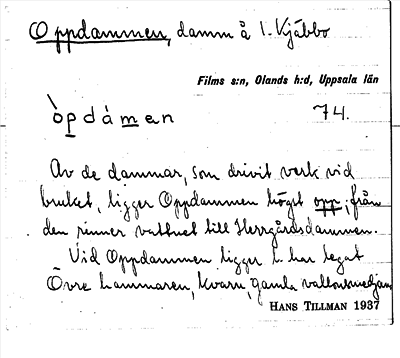 Oppdammen, damm å 1. Vjäbbo
Films s:n, Olands h:d, Uppsala län
òpdámen 74.
Av de dammar, som drivit verk vid
bruket, ligger Oppdammen högst opp; från
den rinner vattnet till Herrgårdsdammen.
Vid Oppdammen ligger l. har legat
Övre hammaren, kvarn, gamla vallonsmedjan
HANS TILLMAN 1937